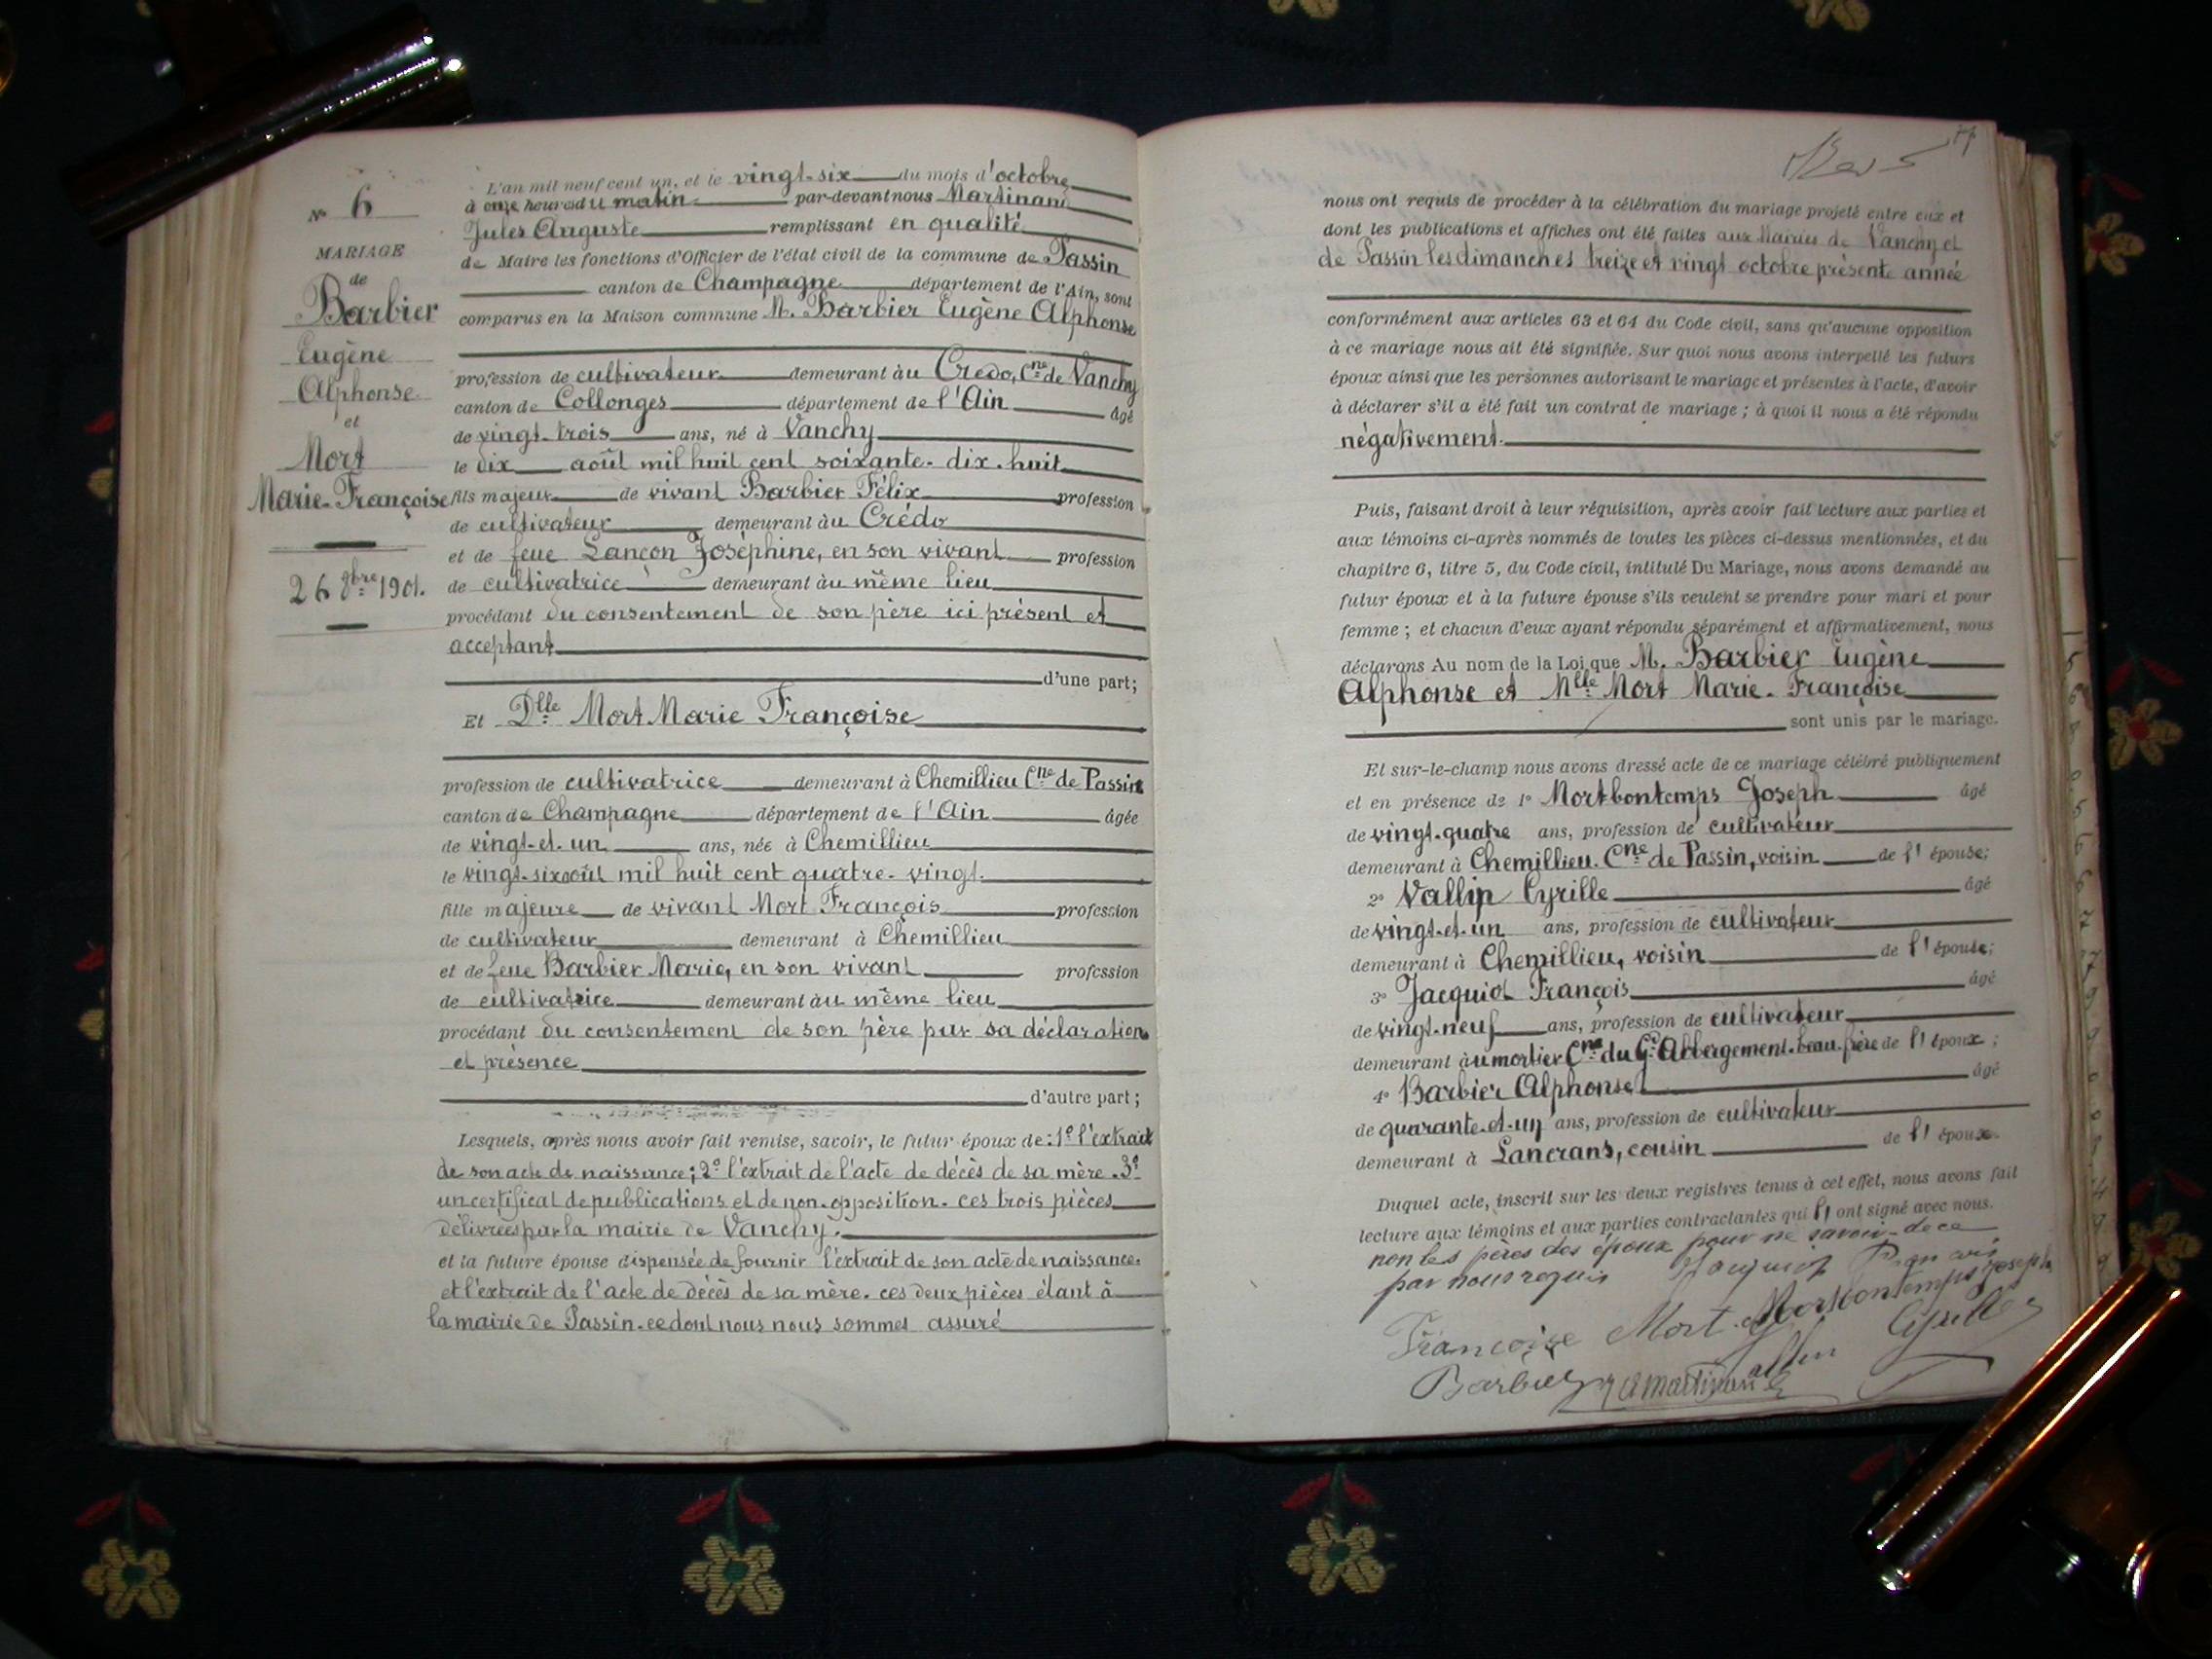 N° 6
MARIAGE
de
Barbier
Eugène
Alphonse
et
Mort
Marie-Françoise
26 8bre 1901.
L'an mil neuf cent un, et le vingt-six du mois d'octobre
à onze heures du matin par-devant nous Martinand
Jules Auguste remplissant en qualité
de Maire les fonctions d'Officier de l'état civil de la commune de Passin
canton de Champagne département de l'Ain, sont
comparus en la Maison commune M. Barbier Eugène Alphonse
profession de cultivateur demeurant àu Credo, Cne de Vanchy
canton de Collonges département de l'Ain âgé
de vingt-trois ans, né à Vanchy
le dix août mil huit cent soixante-dix-huit
fils majeur de vivant Barbier Félix profession
de cultivateur demeurant àu Crédo
et de feue Lançon Joséphine, en son vivant profession
de cultivatrice demeurant àu même lieu
procédant du consentement de son père ici présent et
acceptant
d'une part;
Et Dlle Mort Marie Françoise
profession de cultivatrice demeurant à Chemillieu Cne de Passin
canton de Champagne département de l'Ain âgée
de vingt-et-un ans, née à Chemillieu
le vingt-six août mil huit cent quatre-vingt.
fille majeure de vivant Mort François profession
de cultivateur demeurant à Chemillieu
et de feue Barbier Marie, en son vivant profession
de cultivatrice demeurant àu même lieu
procédant du consentement de son père par sa déclaration
et présence
d'autre part;
Lesquels, après nous avoir fait remise, savoir, le futur époux de: 1° l'extrait
de son acte de naissance; 2° l'extrait de l'acte de décès de sa mère. 3°
un certificat de publications et de non-opposition. ces trois pièces
délivrées par la mairie de Vanchy.
et la future épouse dispensée de fournir l'extrait de son acte de naissance.
et l'extrait de l'acte de décès de sa mère. ces deux pièces étant à
la mairie de Passin. ce dont nous nous sommes assuré
nous ont requis de procéder à la célébration du mariage projeté entre eux et
dont les publications et affiches ont été faites aux Mairies de Vanchy et
de Passin les dimanches treize et vingt octobre présente année
conformément aux articles 63 et 64 du Code civil, sans qu'aucune opposition
à ce mariage nous ait été signifiée. Sur quoi nous avons interpellé les futurs
époux ainsi que les personnes autorisant le mariage et présentes à l'acte, d'avoir
à déclarer s'il a été fait un contrat de mariage ; à quoi il nous a été répondu
négativement.
Puis, faisant droit à leur réquisition, après avoir fait lecture aux parties et
aux témoins ci-après nommés de toutes les pièces ci-dessus mentionnées, et du
chapitre 6, titre 5, du Code civil, intitulé Du Mariage, nous avons demandé au
futur époux et à la future épouse s'ils veulent se prendre pour mari et pour
femme ; et chacun d'eux ayant répondu séparément et affirmativement, nous
déclarons Au nom de la Loi que M. Barbier Eugène
Alphonse et Mlle Mort Marie-Françoise
sont unis par le mariage.
Et sur-le-champ nous avons dressé acte de ce mariage célébré publiquement
et en présence de 1° Mortbontemps Joseph âgé
de vingt-quatre ans, profession de cultivateur
demeurant à Chemillieu. Cne de Passin, voisin de l' épouse;
2° Vallin Cyrille âgé
de vingt-et-un ans, profession de cultivateur
demeurant à Chemillieu, voisin de l' épouse;
3° Jacquiot François âgé
de vingt-neuf ans, profession de cultivateur
demeurant àu mortier Cne du Gd Abbergement. beau-frère de l' époux ;
4° Barbier Alphonse âgé
de quarante-et-un ans, profession de cultivateur
demeurant à Lancrans, cousin de l' époux.
Duquel acte, inscrit sur les deux registres tenus à cet effet, nous avons fait
lecture aux témoins et aux parties contractantes qui l' ont signé avec nous.
non les pères des époux pour ne savoir de ce
par nous requis Jacquiot
Mortbontemps Joseph
Françoise Mort Vallin Cyrille
Barbier J A Martinand